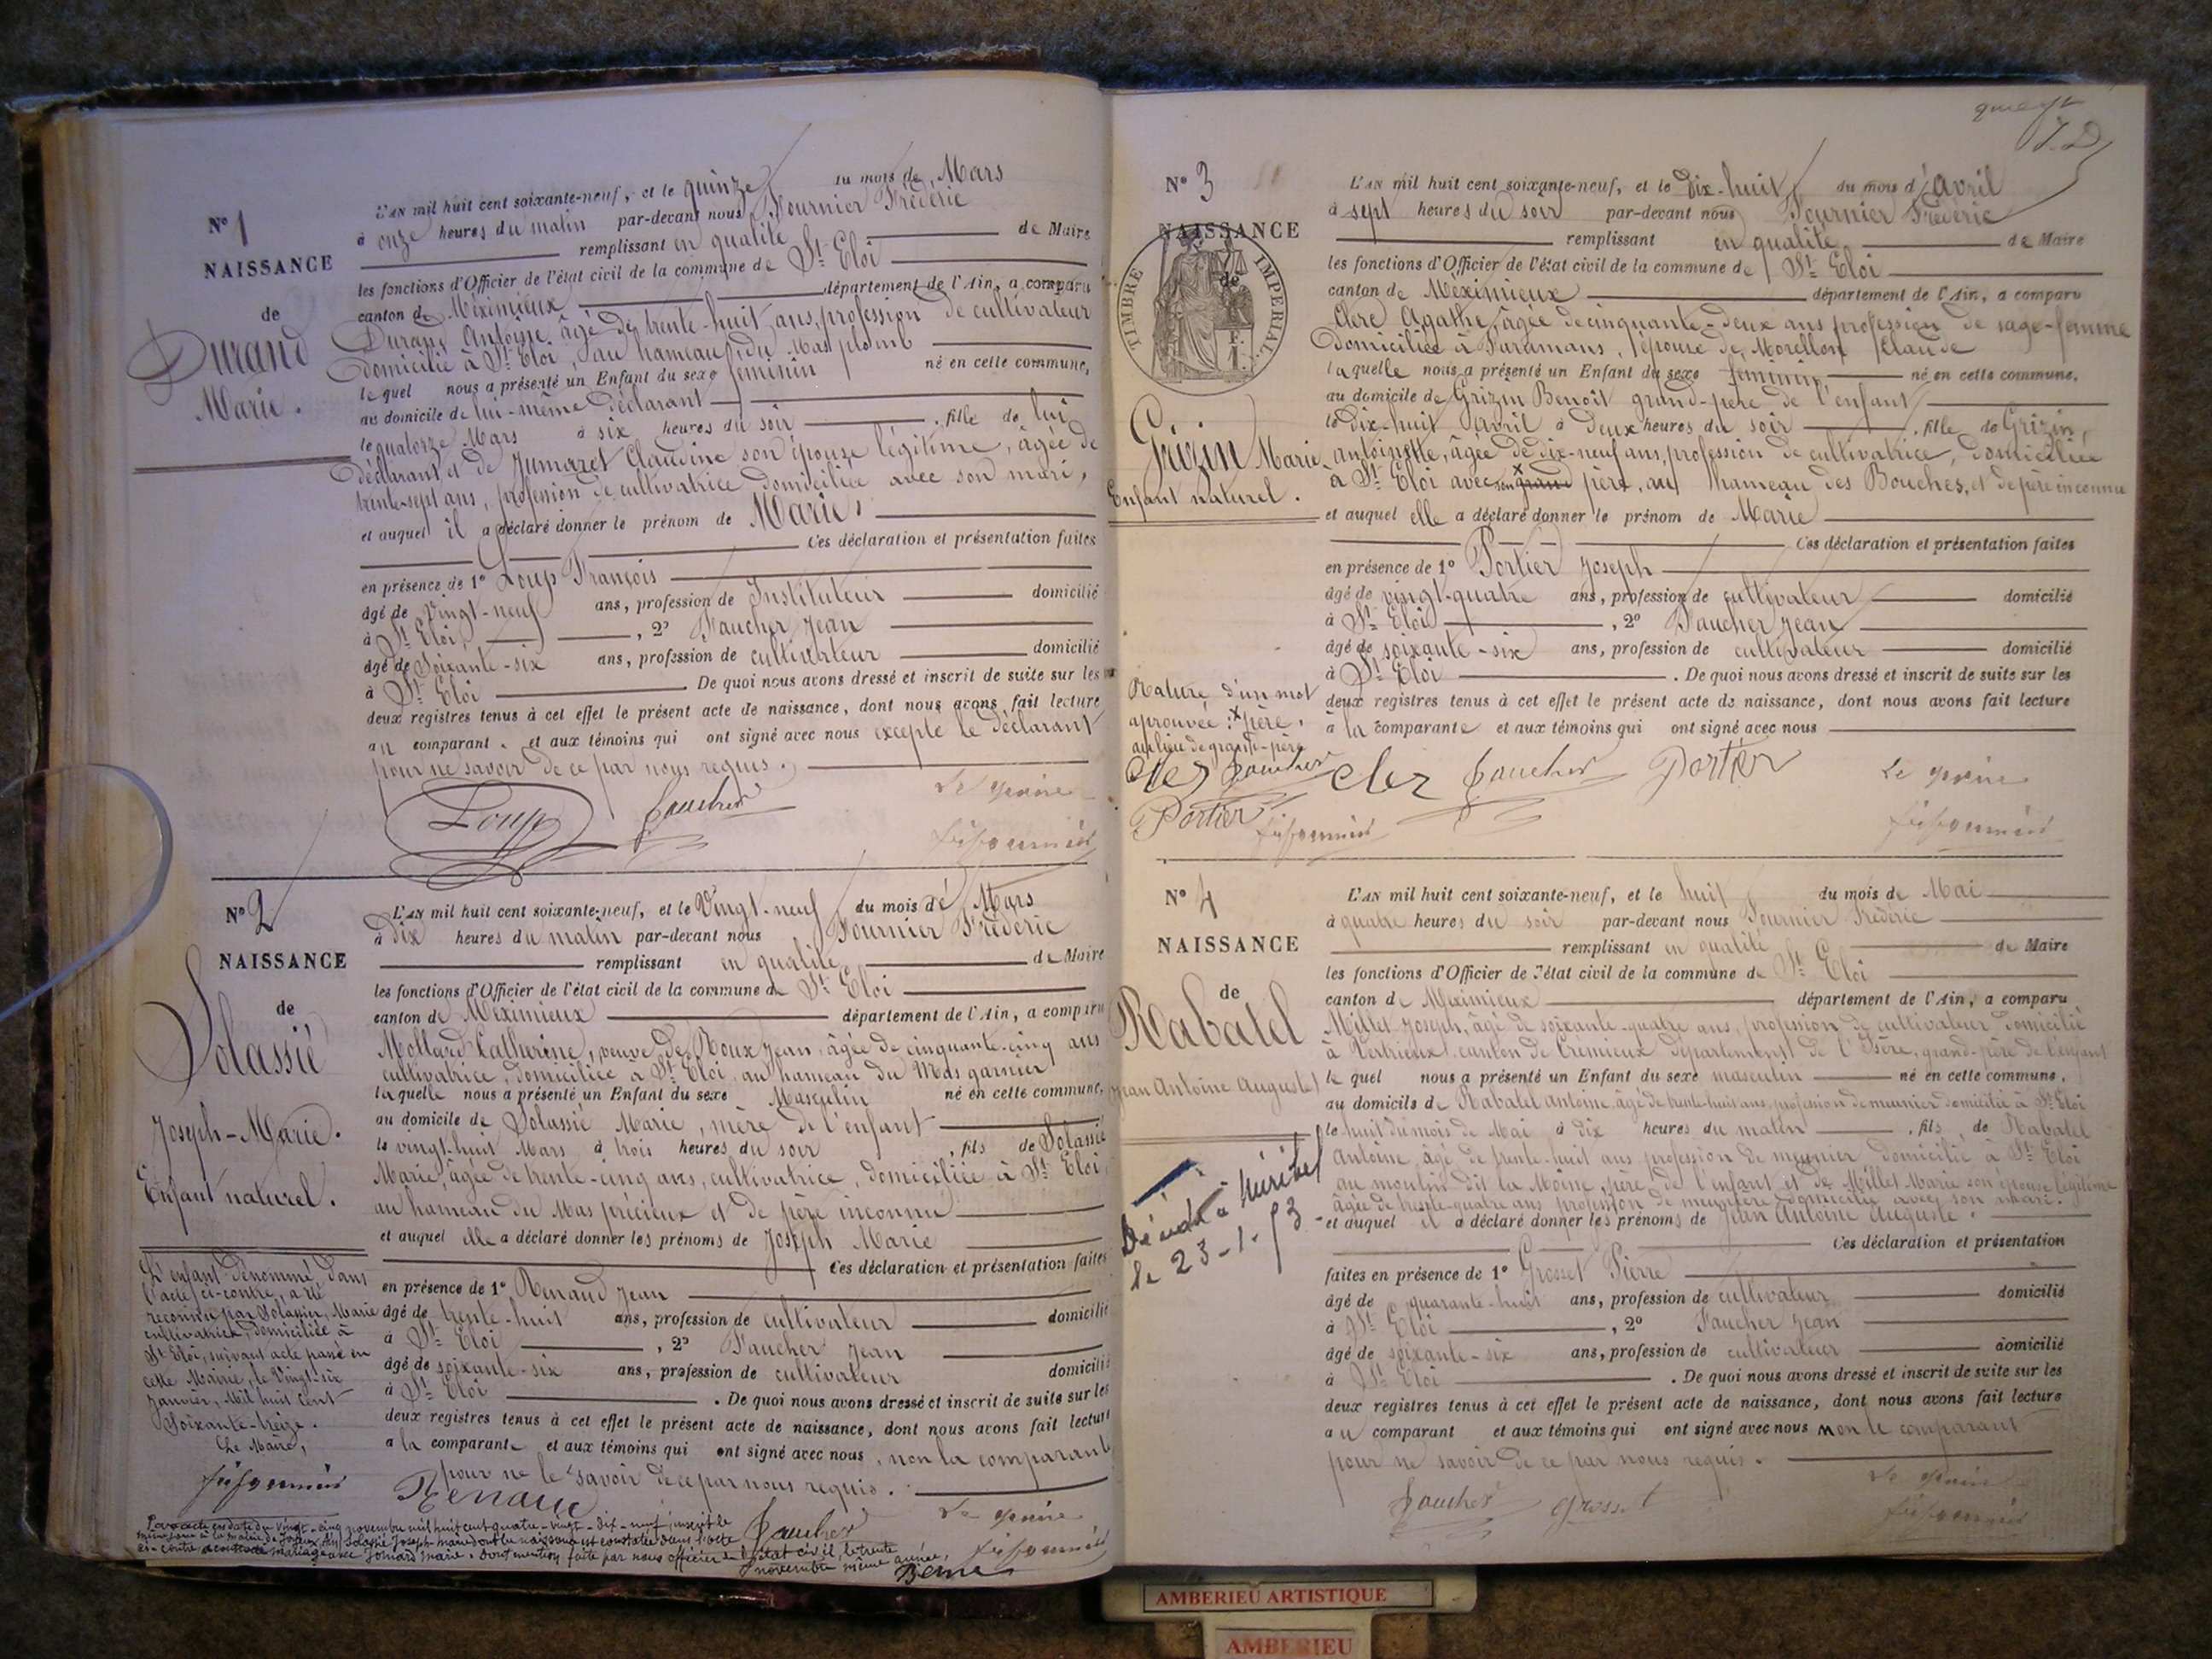 N° 1
NAISSANCE
de
Durand
Marie.
L'AN mil huit cent soixante-neuf, et le quinze du mois de Mars
à onze heures du matin par-devant nous Fournier Frédéric
remplissant en qualité de Maire
les fonctions d'Officier de l'état civil de la commune de St Eloi
canton de Méximieux département de l'Ain, a comparu
Durand Antoine, âgé de trente-huit ans, profession de cultivateur
domicilié à St Eloi, au hameau du Mas plomb
le quel nous a présenté un Enfant du sexe féminin né en cette commune,
au domicile de lui-même déclarant
le quatorze Mars à six heures du soir, fille de lui
déclarant et de Jumaret Claudine son épouse légitime, âgée de
trente-sept ans, profession de cultivatrice domiciliée avec son mari,
et auquel il a déclaré donner le prénom de Marie.
Ces déclaration et présentation faites
en présence de 1° Loup François
âgé de vingt-neuf ans, profession de Instituteur domicilié
à St Eloi, 2° Faucher Jean
âgé de Soixante-six ans, profession de cultivateur domicilié
à St Eloi De quoi nous avons dressé et inscrit de suite sur les
deux registres tenus à cet effet le présent acte de naissance, dont nous avons fait lecture
au comparant. et aux témoins qui ont signé avec nous excepté le déclarant
pour ne savoir de ce par nous requis.
Loup Faucher Le Maire
N° 2
NAISSANCE
de
Solassié
Joseph-Marie.
Enfant naturel.
L'AN mil huit cent soixante-neuf, et le Vingt-neuf du mois de Mars
à dix heures du matin par-devant nous Fournier Frédéric
remplissant en qualité de Maire
les fonctions d'Officier de l'état civil de la commune de St Eloi
canton de Meximieux département de l'Ain, a comparu
Mollard Catherine, veuve de Roux Jean, âgée de cinquante-cinq ans
cultivatrice, domiciliée à St Eloi, au hameau du Mas garnier
laquelle nous a présenté un Enfant du sexe Masculin né en cette commune,
au domicile de Solassié Marie, mère de l'enfant
le vingt-huit Mars à trois heures du soir, fils de Solassié
Marie, âgée de trente-cinq ans, cultivatrice, domiciliée à St Eloi,
au hameau du Mas précieux et de père inconnu
et auquel elle a déclaré donner les prénoms de Joseph Marie
Ces déclaration et présentation faites
en présence de 1° Renaud Jean
âgé de trente-huit ans, profession de cultivateur domicilié
à St Eloi, 2° Faucher Jean
âgé de soixante-six ans, profession de cultivateur domicilié
à St Eloi. De quoi nous avons dressé et inscrit de suite sur les
deux registres tenus à cet effet le présent acte de naissance, dont nous avons fait lecture
a la comparante et aux témoins qui ont signé avec nous, non la comparante
pour ne le savoir de ce par nous requis.
Renaud Faucher Le Maire
L'enfant dénommé dans
l'acte ci-contre, a été
reconnu par Solassier, Marie
cultivatrice, domiciliée à
St Eloi, suivant acte passé en
cette Mairie, le Vingt-six
Janvier, Mil huit Cent
Soixante-treize.
Le Maire,
Par acte en date du vingt-cinq novembre mil huit cent quatre-vingt-dix-neuf, inscrit le
même jour à la mairie de Joyeux, Solassié Joseph-Marie dont la naissance est constatée dans l'acte
ci-contre, a contracté mariage avec Jomard Marie. Dont mention faite par nous officier de l'état civil, le trente
novembre même année.
N° 3
NAISSANCE
de
TIMBRE IMPERIAL
Grizin Marie
Enfant naturel.
L'AN mil huit cent soixante-neuf, et le Dix-huit du mois d'avril
à sept heures du soir par-devant nous Fournier Frédéric
remplissant en qualité de Maire
les fonctions d'Officier de l'état civil de la commune de St Eloi
canton de Meximieux département de l'Ain, a comparu
Clerc Agathe, âgée de cinquante-deux ans profession de sage-femme
domiciliée à Faramans, épouse de Morellon Claude
laquelle nous a présenté un Enfant du sexe féminin, né en cette commune.
au domicile de Grizin Benoît grand-père de l'enfant
le dix-huit avril à deux heures du soir, fille de Grizin,
antoinette, âgée de dix-neuf ans, profession de cultivatrice, domiciliée
à St Eloi avec son grand père, au hameau des Bouches, et de père inconnu
et auquel elle a déclaré donner le prénom de Marie
Ces déclaration et présentation faites
en présence de 1° Portier Joseph
âgé de vingt-quatre ans, profession de cultivateur domicilié
à St Eloi, 2° Faucher Jean
âgé de soixante-six ans, profession de cultivateur domicilié
à St Eloi. De quoi nous avons dressé et inscrit de suite sur les
deux registres tenus à cet effet le présent acte de naissance, dont nous avons fait lecture
à la comparante et aux témoins qui ont signé avec nous
Rature d'un mot
aprouvée: x père,
au lieu de grand-père
Cler Faucher
Portier
Cler Faucher Portier Le Maire
N° 4
NAISSANCE
de
Rabatel
Jean Antoine Auguste
L'AN mil huit cent soixante-neuf, et le huit du mois de Mai
à quatre heures du soir par-devant nous Fournier Frédéric
remplissant en qualité de Maire
les fonctions d'Officier de l'état civil de la commune de St Eloi
canton de Meximieux département de l'Ain, a comparu
Millet Joseph, âgé de soixante-quatre ans, profession de cultivateur domicilié
à Vertrieux canton de Crémieux département de l'Isère, grand-père de l'enfant
le quel nous a présenté un Enfant du sexe masculin né en cette commune,
au domicile de Rabatel Antoine, âgé de trente-huit ans, profession de meunier domicilié à St Eloi
le huit du mois de Mai à dix heures du matin, fils de Rabatel
Antoine, âgé de trente-huit ans profession de meunier domicilié à St Eloi
au moulin dit la Moine, père de l'enfant et de Millet Marie son épouse légitime
âgée de trente-quatre ans profession de meunière domiciliée avec son mari.
et auquel il a déclaré donner les prénoms de Jean Antoine Auguste.
Ces déclaration et présentation
faites en présence de 1° Grosset Pierre
âgé de quarante-huit ans, profession de cultivateur domicilié
à St Eloi, 2° Faucher Jean
âgé de soixante-six ans, profession de cultivateur domicilié
à St Eloi. De quoi nous avons dressé et inscrit de suite sur les
deux registres tenus à cet effet le présent acte de naissance, dont nous avons fait lecture
au comparant et aux témoins qui ont signé avec nous non le comparant
pour ne savoir de ce par nous requis.
Faucher Grosset Le Maire
Décédé à Miribel
le 23-1-53
AMBERIEU ARTISTIQUE
AMBERIEU